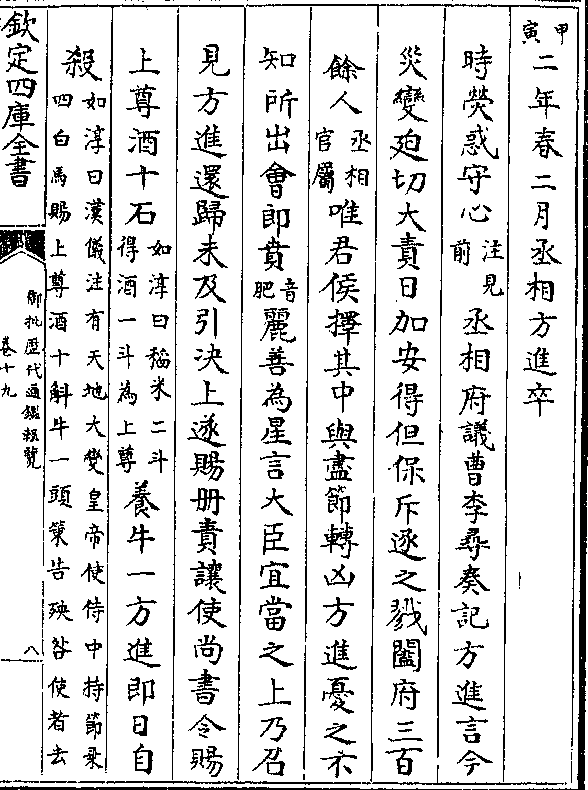 甲寅
二年春二月丞相方進卒
時熒惑守心注見前丞相府議曹李尋奏記方進言今
災變廹切大責日加安得但保斥逐之戮闔府三百
餘人丞相官屬唯君侯擇其中與盡節轉凶方進憂之不
知所出會郎賁音肥麗善為星言大臣宜當之上乃召
見方進還歸未及引決上遂賜册責讓使尚書令賜
上尊酒十石如淳曰稻米二斗得酒一斗為上尊養牛一方進即日自
殺如淳曰漢儀注有天地大變皇帝使侍中持節乗四白馬賜上尊酒十斛牛一頭策告殃咎使者去
欽定四庫全書
御批歴代通鑑輯覽
卷十九
八